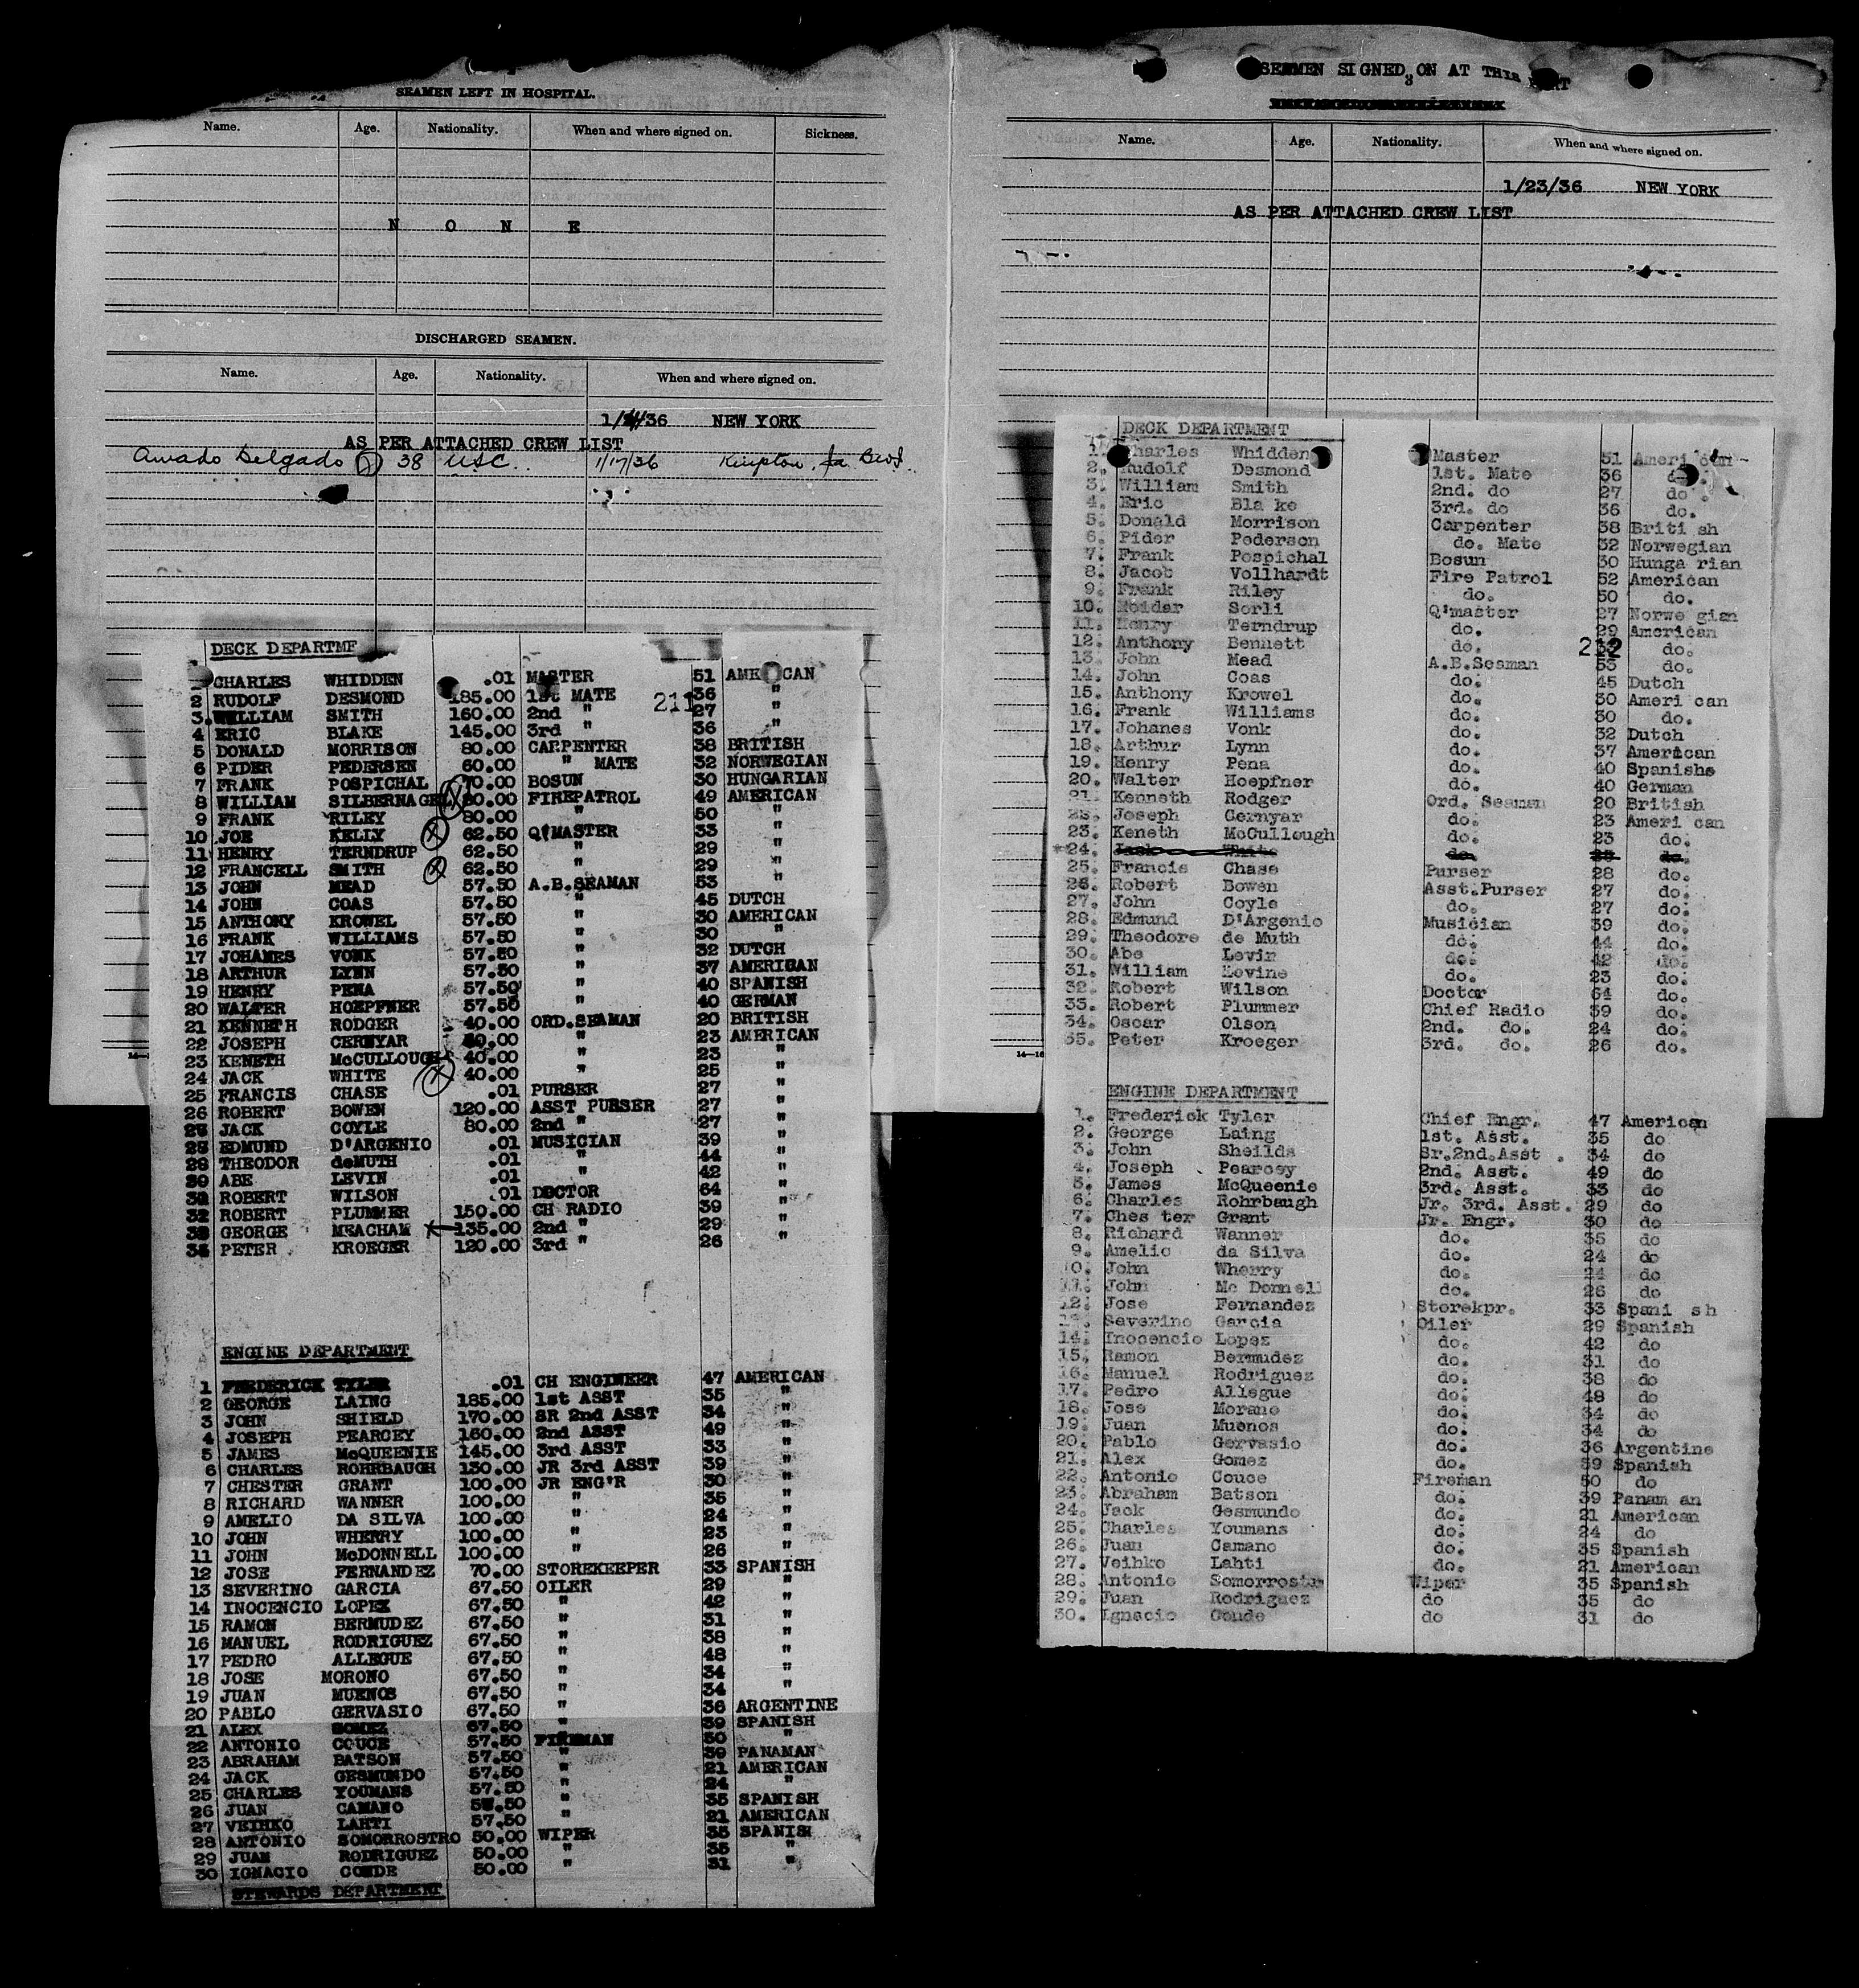 SEAMEN LEFT IN HOSPITAL.
Name. Age. Nationality. When and where signed on. Sickness.
N O N E
DISCHARGED SEAMEN.
Name. Age. Nationality. When and where signed on.
NEW YORK
AS PER ATTACHED CREW LIST
Amado Delgado 38 USC. 1/17/36 Kingston, Ja
DECK DEPARTME
CHARLES WHIDDEN .01 MASTER 51 AME CAN
2 RUDOLF DESMOND 185.00 1st MATE 36 "
211
3. WILLIAM SMITH 160.00 2nd " 27 "
4 ERIC BLAKE 145.00 3rd " 36 "
5 DONALD MORRISON 80.00 CARPENTER 38 BRITISH
6 PIDER PEDERSEN 60.00 " MATE 32 NORWEGIAN
7 FRANK POSPICHAL 70.00 BOSUN 30 HUNGARIAN
8 WILLIAM SILBERNAGEL 80.00 FIREPATROL 49 AMERICAN
9 FRANK RILEY 80.00 " 50 "
10 JOE KELLY 62.50 Q'MASTER 33 "
11 HENRY TERNDRUP 62.50 " 29 "
12 FRANCELL SMITH 62.50 " 29 "
13 JOHN MEAD 57.50 A.B.SEAMAN 53 "
14 JOHN COAS 57.50 " 45 DUTCH
15 ANTHONY KROWEL 57.50 " 30 AMERICAN
16 FRANK WILLIAMS 57.50 " 30 "
17 JOHANES VONK 57.50 " 32 DUTCH
18 ARTHUR LYNN 57.50 " 37 AMERICAN
19 HENRY PENA 57.50 " 40 SPANISH
20 WALTER HOEPFNER 57.50 " 40 GERMAN
21 KENNETH RODGER 40.00 ORD.SEAMAN 20 BRITISH
22 JOSEPH CERNYAR 40.00 " 23 AMERICAN
23 KENETH McCULLOUGH 40.00 " 23 "
24 JACK WHITE 40.00 " 25 "
25 FRANCIS CHASE .01 PURSER 27 "
26 ROBERT BOWEN 120.00 ASST PURSER 27 "
JACK COYLE 80.00 2nd " 27 "
EDMUND D'ARGENIO .01 MUSICIAN 39 "
THEODOR deMUTH .01 " 44 "
ABE LEVIN .01 " 42 "
ROBERT WILSON .01 DOCTOR 64 "
ROBERT PLUMMER 150.00 CH RADIO 39 "
GEORGE MEACHAM 135.00 2nd " 29 "
PETER KROEGER 120.00 3rd " 26 "
ENGINE DEPARTMENT
1 FREDERICK TYLER .01 CH ENGINEER 47 AMERICAN
2 GEORGE LAING 185.00 1st ASST 35 "
3 JOHN SHIELD 170.00 SR 2nd ASST 34 "
4 JOSEPH PEARCEY 160.00 2nd ASST 49 "
5 JAMES McQUEENIE 145.00 3rd ASST 33 "
6 CHARLES ROHRBAUGH 130.00 JR 3rd ASST 39 "
7 CHESTER GRANT 100.00 JR ENG'R 30 "
8 RICHARD WANNER 100.00 " 35 "
9 AMELIO DA SILVA 100.00 " 24 "
10 JOHN WHERRY 100.00 " 23 "
11 JOHN McDONNELL 100.00 " 26 "
12 JOSE FERNANDEZ 70.00 STOREKEEPER 33 SPANISH
13 SEVERINO GARCIA 67.50 OILER 29 "
14 INOCENCIO LOPEZ 67.50 " 42 "
15 RAMON BERMUDEZ 67.50 " 31 "
16 MANUEL RODRIGUEZ 67.50 " 38 "
17 PEDRO ALLEGUE 67.50 " 48 "
18 JOSE MORONO 67.50 " 34 "
19 JUAN MUENOS 67.50 " 34 "
20 PABLO GERVASIO 67.50 " 36 ARGENTINE
21 ALEX GOMEZ 67.50 " 39 SPANISH
22 ANTONIO COUCE 57.50 FIREMAN 50 "
23 ABRAHAM BATSON 57.50 " 39 PANAMAN
24 JACK GESMUNDO 57.50 " 21 AMERICAN
25 CHARLES YOUMANS 57.50 " 24 "
26 JUAN CAMANO 57.50 " 35 SPANISH
27 VEIHKO LAHTI 57.50 " 21 AMERICAN
28 ANTONIO SOMORROSTRO 50.00 WIPER 35 SPANISH
29 JUAN RODRIGUEZ 50.00 " 35 "
30 IGNACIO CONDE 50.00 " 31 "
STEWARDS DEPARTMENT
SEAMEN SIGNED ON AT THIS
3
Name. Age. Nationality. When and where signed on.
1/23/36 NEW YORK
AS PER ATTACHED CREW LIST
DECK DEPARTMENT
1. Charles Whidden Master 51 Ameri can
2. Rudolf Desmond 1st. Mate 36
3. William Smith 2nd. do 27 do.
4. Eric Bla ke 3rd. do 36 do.
5. Donald Morrison Carpenter 38 Briti sh
6. Pider Pederson do. Mate 32 Norwegian
7. Frank Pospichal Bosun 30 Hunga rian
8. Jacob Vollhardt Fire Patrol 52 American
9. Frank Riley do. 50 do.
10. Reidar Sorli Q'master 27 Norwe gian
11. Henry Terndrup do. 29 American
212
12. Anthony Bennett do. do.
13. John Mead A.B.Seaman 53 do.
14. John Coas do. 45 Dutch
15. Anthony Krowel do. 30 Ameri can
16. Frank Williams do. 30 do.
17. Johanes Vonk do. 32 Dutch
18. Arthur Lynn do. 37 American
19. Henry Pena do. 40 Spanishs
20. Walter Hoepfner do. 40 German
21. Kenneth Rodger Ord. Seaman 20 British
22. Joseph Cernyar do. 23 Ameri can
23. Keneth McCullough do. 23 do.
24. Jack White do. do.
25. Francis Chase Purser 28 do.
26. Robert Bowen Asst.Purser 27 do.
27. John Coyle do. 27 do.
28. Edmund D'Argenio Musician 39 do.
29. Theodore de Muth do. 44 do.
30. Abe Levin do. 42 do.
31. William Levine do. 23 do.
32. Robert Wilson Doctor 64 do.
33. Robert Plummer Chief Radio 39 do.
34. Oscar Olson 2nd. do. 24 do.
35. Peter Kroeger 3rd. do. 26 do.
ENGINE DEPARTMENT
1. Frederick Tyler Chief Engr. 47 American
2. George Laing 1st. Asst. 35 do
3. John Sheilds Sr.2nd.Asst . 34 do
4. Joseph Pearcey 2nd. Asst. 49 do
5. James McQueenie 3rd. Asst. 33 do
6. Charles Rohrbaugh Jr. 3rd. Asst. 29 do
7. Ches ter Grant Jr. Engr. 30 do
8. Richard Wanner do. 35 do
9. Amelio da Silva do. 24 do
10. John Wherry do. 24 do
11. John Mc Donnell do. 26 do
12. Jose Fernandez Storekpr. 33 Spani sh
13. Severino Garcia Oiler 29 Spanish
14. Inocencio Lopez do. 42 do
15. Ramon Bermudez do. 31 do
16. Manuel Rodriguez do. 38 do
17. Pedro Allegue do. 48 do
18. Jose Morano do. 34 do
19. Juan Muenos do. 34 do
20. Pablo Gervasio do. 36 Argentine
21. Alex Gomez do. 39 Spanish
22. Antonio Couce Fireman 50 do
23. Abraham Batson do. 39 Panam an
24. Jack Gesmundo do. 21 American
25. Charles Youmans do. 24 do
26. Juan Camano do. 35 Spanish
27. Veihko Lahti do. 21 American
28. Antonio Somorrostr Wiper 35 Spanish
29. Juan Rodriguez do 35 do
30. Ignacio Conde do 31 do